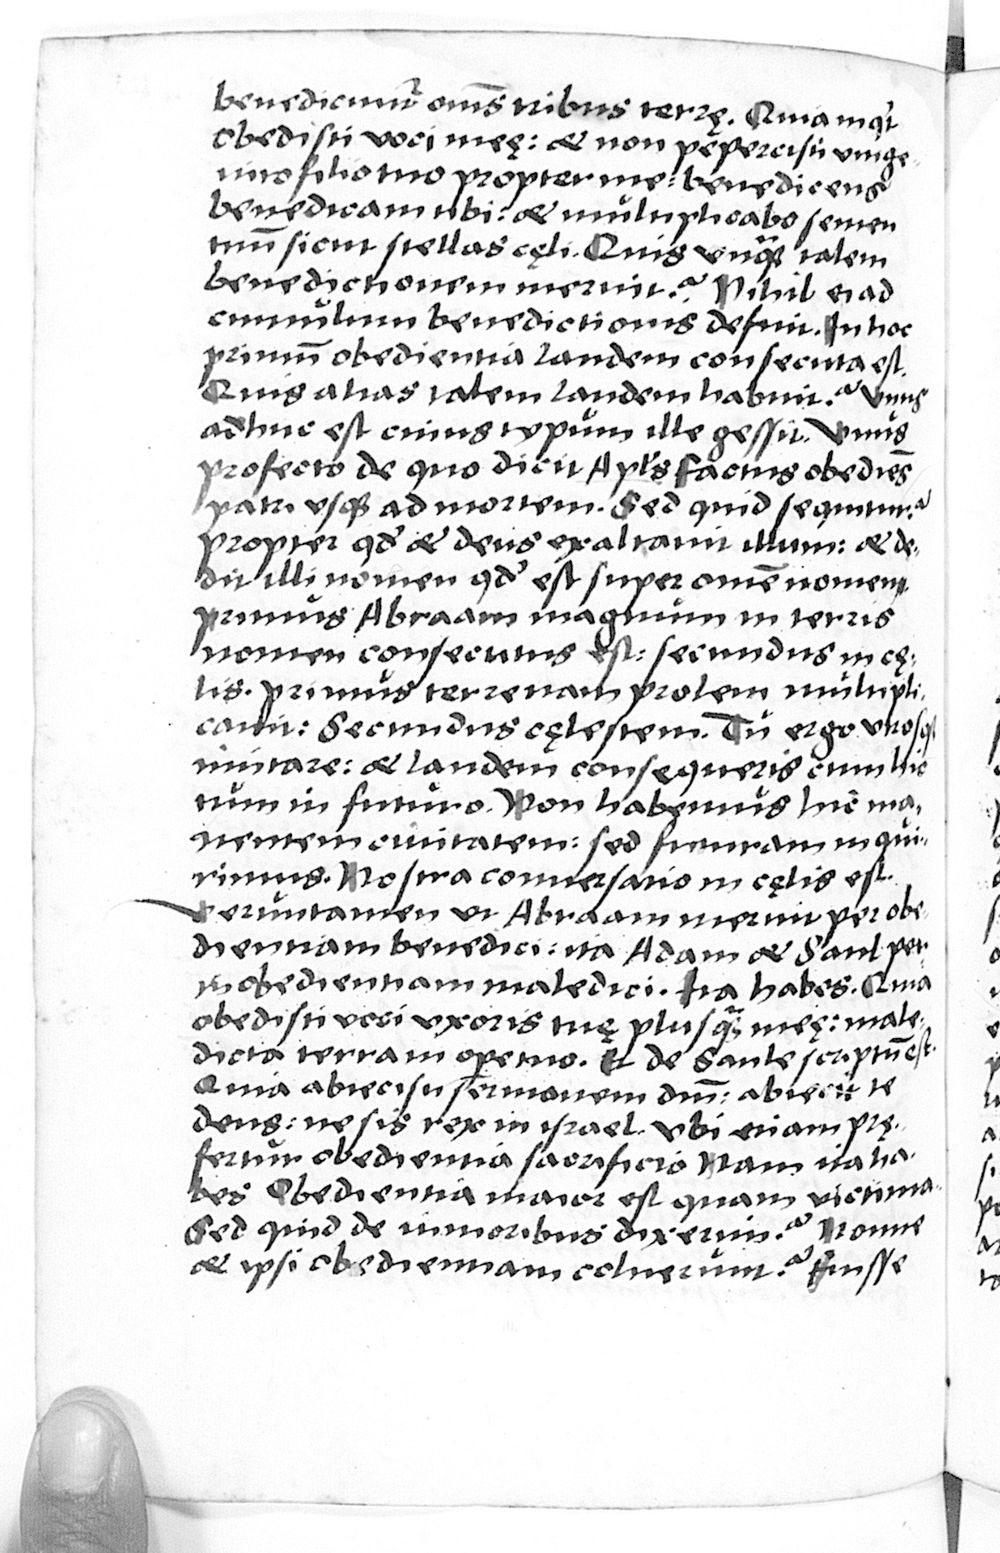 benedicunt᷑ om̅s tribus terrę. Quia inq᷑t
Obedisti voci meę: & non pepercisti vnige-
nito filio tuo propter me: benedicens
benedicam tibi: & multiplicabo semen
tuū sicut stellas cęli. Quis vnq̃ȝ talem
benedictionem meruit? Nihil ei ad
cumulum benedictionis defuit. In hoc
primū obedientia laudem consecuta est.
Quis alias talem laudem habuit? Vnus
adhuc est cuius typum ille gessit. Vnus
profecto de quo dicit Apl̅s Factus obediēs
patri vsqȝ ad mortem. Sed quid sequitur?
propter qd̛ & deus exaltauit illum: & de-
dit illi nomen qd̛ est super omē nomen.
primus Abraam magnum in terris
nomen consecutus est: secundus in cę-
lis. primus terrenam prolem multipli-
cauit: Secundus cęlestem. Tu ergo vtrosqȝ
imitare: & laudem consequeris cum hic
tum in futuro. Non habemus hic̄ ma-
nentem ciuitatem: sed futuram inqui-
rimus. Nostra conuersatio in cęlis est.
Veruntamen vt Abraam meruit per obe-
dientiam benedici: ita Adam & Saul per
inobedientiam maledici. Ita habes. Quia
obedisti voci vxoris tuę plusq̃ȝ meę: male-
dicta terra in opere tuo. Et de Saule scriptū est.
Quia abiecisti sermonem dn̄i: abiecit te
deus: ne sis rex in israel. vbi etiam prę-
fertur obedientia sacrificio Nam ita ha-
bes Obedientia maior est quam victima.
Sed quid de minoribus dixerim? Nonne
& ipsi obedientiam coluerunt? Fuisse